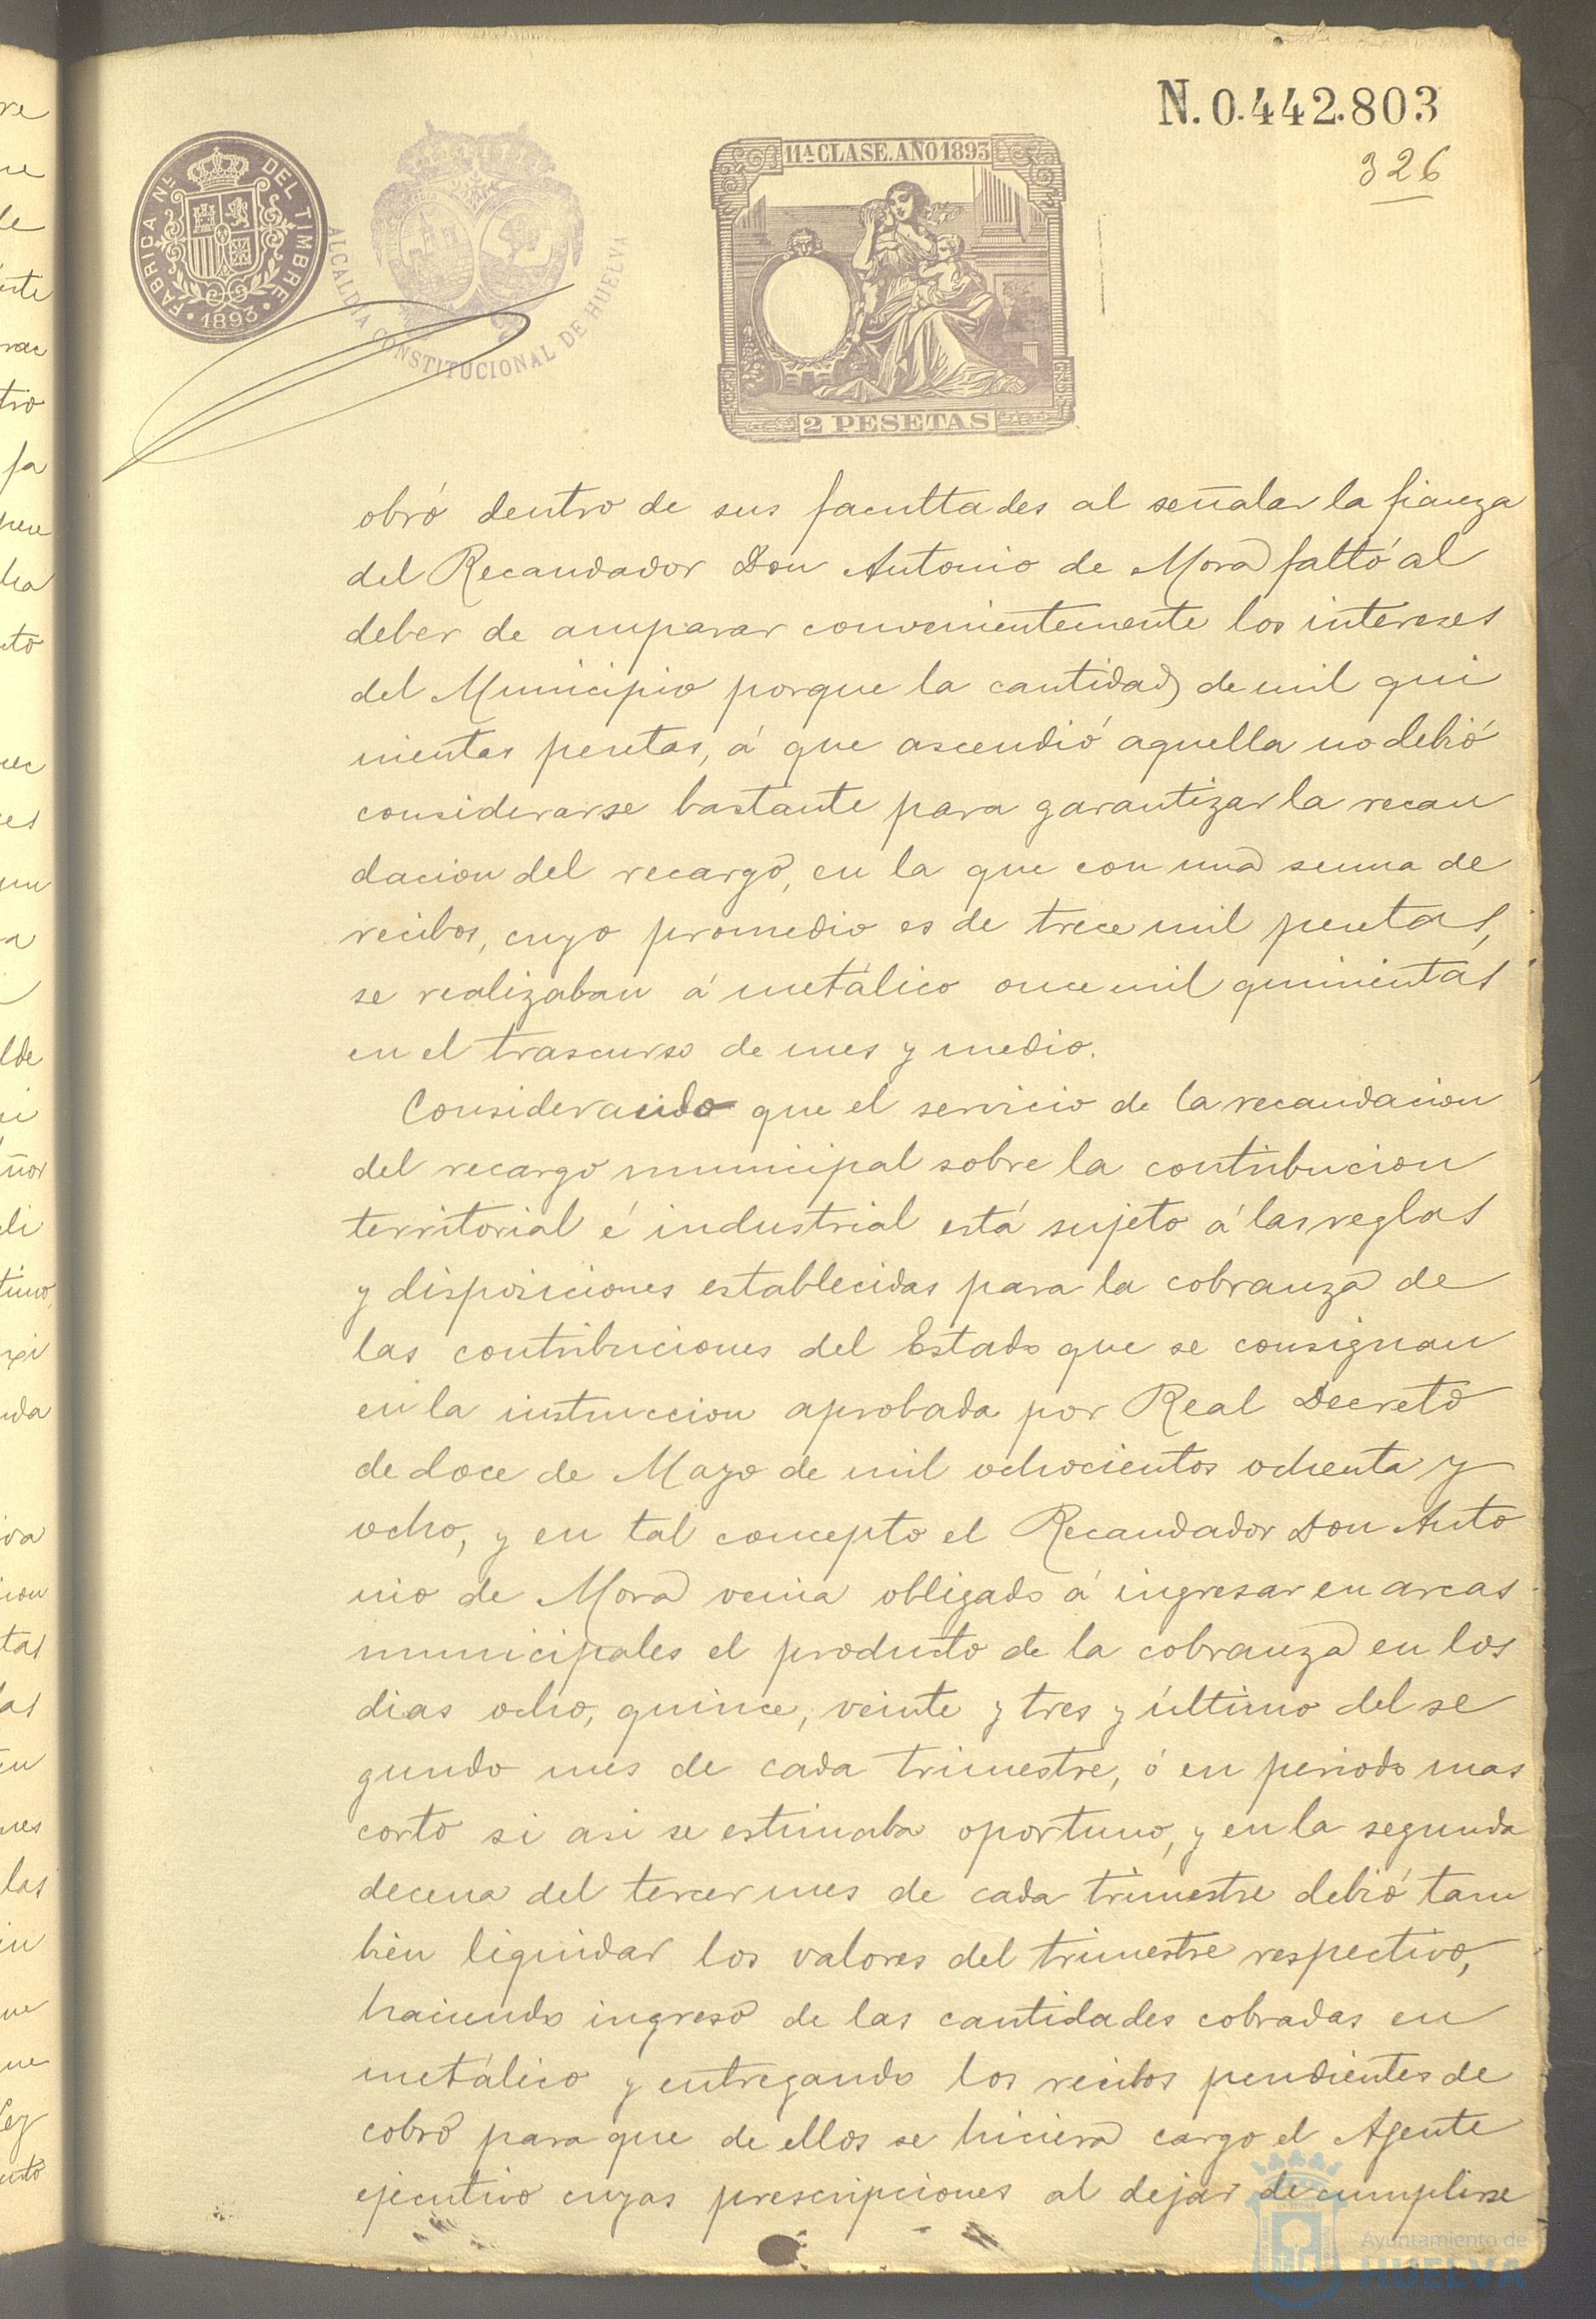 N. 0.442.803
326
FABRICA NL. DEL TIMBRE
1893
ALCALDIA CONSTITUCIONAL DE HUELVA
11ª CLASE. AÑO 1893
2 PESETAS
obró dentro de sus facultades al señalar la fianza
del Recaudador Don Antonio de Mora faltó al
deber de amparar convenientemente los intereses
del Municipio porque la cantidad de mil qui
nientas pesetas, á que ascendió aquella no debió
considerarse bastante para garantizar la recau
dacion del recargo, en la que con una suma de
recibos, cuyo promedio es de trece mil pesetas,
se realizaban á metálico once mil quinientas
en el trascurso de mes y medio.
Considerando que el servicio de la recaudacion
del recargo municipal sobre la contribucion
territorial é industrial está sujeto á las reglas
y disposiciones establecidas para la cobranza de
las contribuciones del Estado que se consignan
en la instruccion aprobada por Real Decreto
de doce de Mayo de mil ochocientos ochenta y
ocho, y en tal concepto el Recaudador Don Anto
nio de Mora venia obligado á ingresar en arcas
municipales el producto de la cobranza en los
dias ocho, quince, veinte y tres y último del se
gundo mes de cada trimestre, ó en periodo mas
corto si asi se estimaba oportuno, y en la segunda
decena del tercer mes de cada trimestre debió tam
bien liquidar los valores del trimestre respectivo,
haciendo ingreso de las cantidades cobradas en
metálico y entregando los recibos pendientes de
cobro para que de ellos se hiciera cargo el Agente
ejecutivo cuyas prescripciones al dejar de cumplirse
Ayuntamiento de
HUELVA